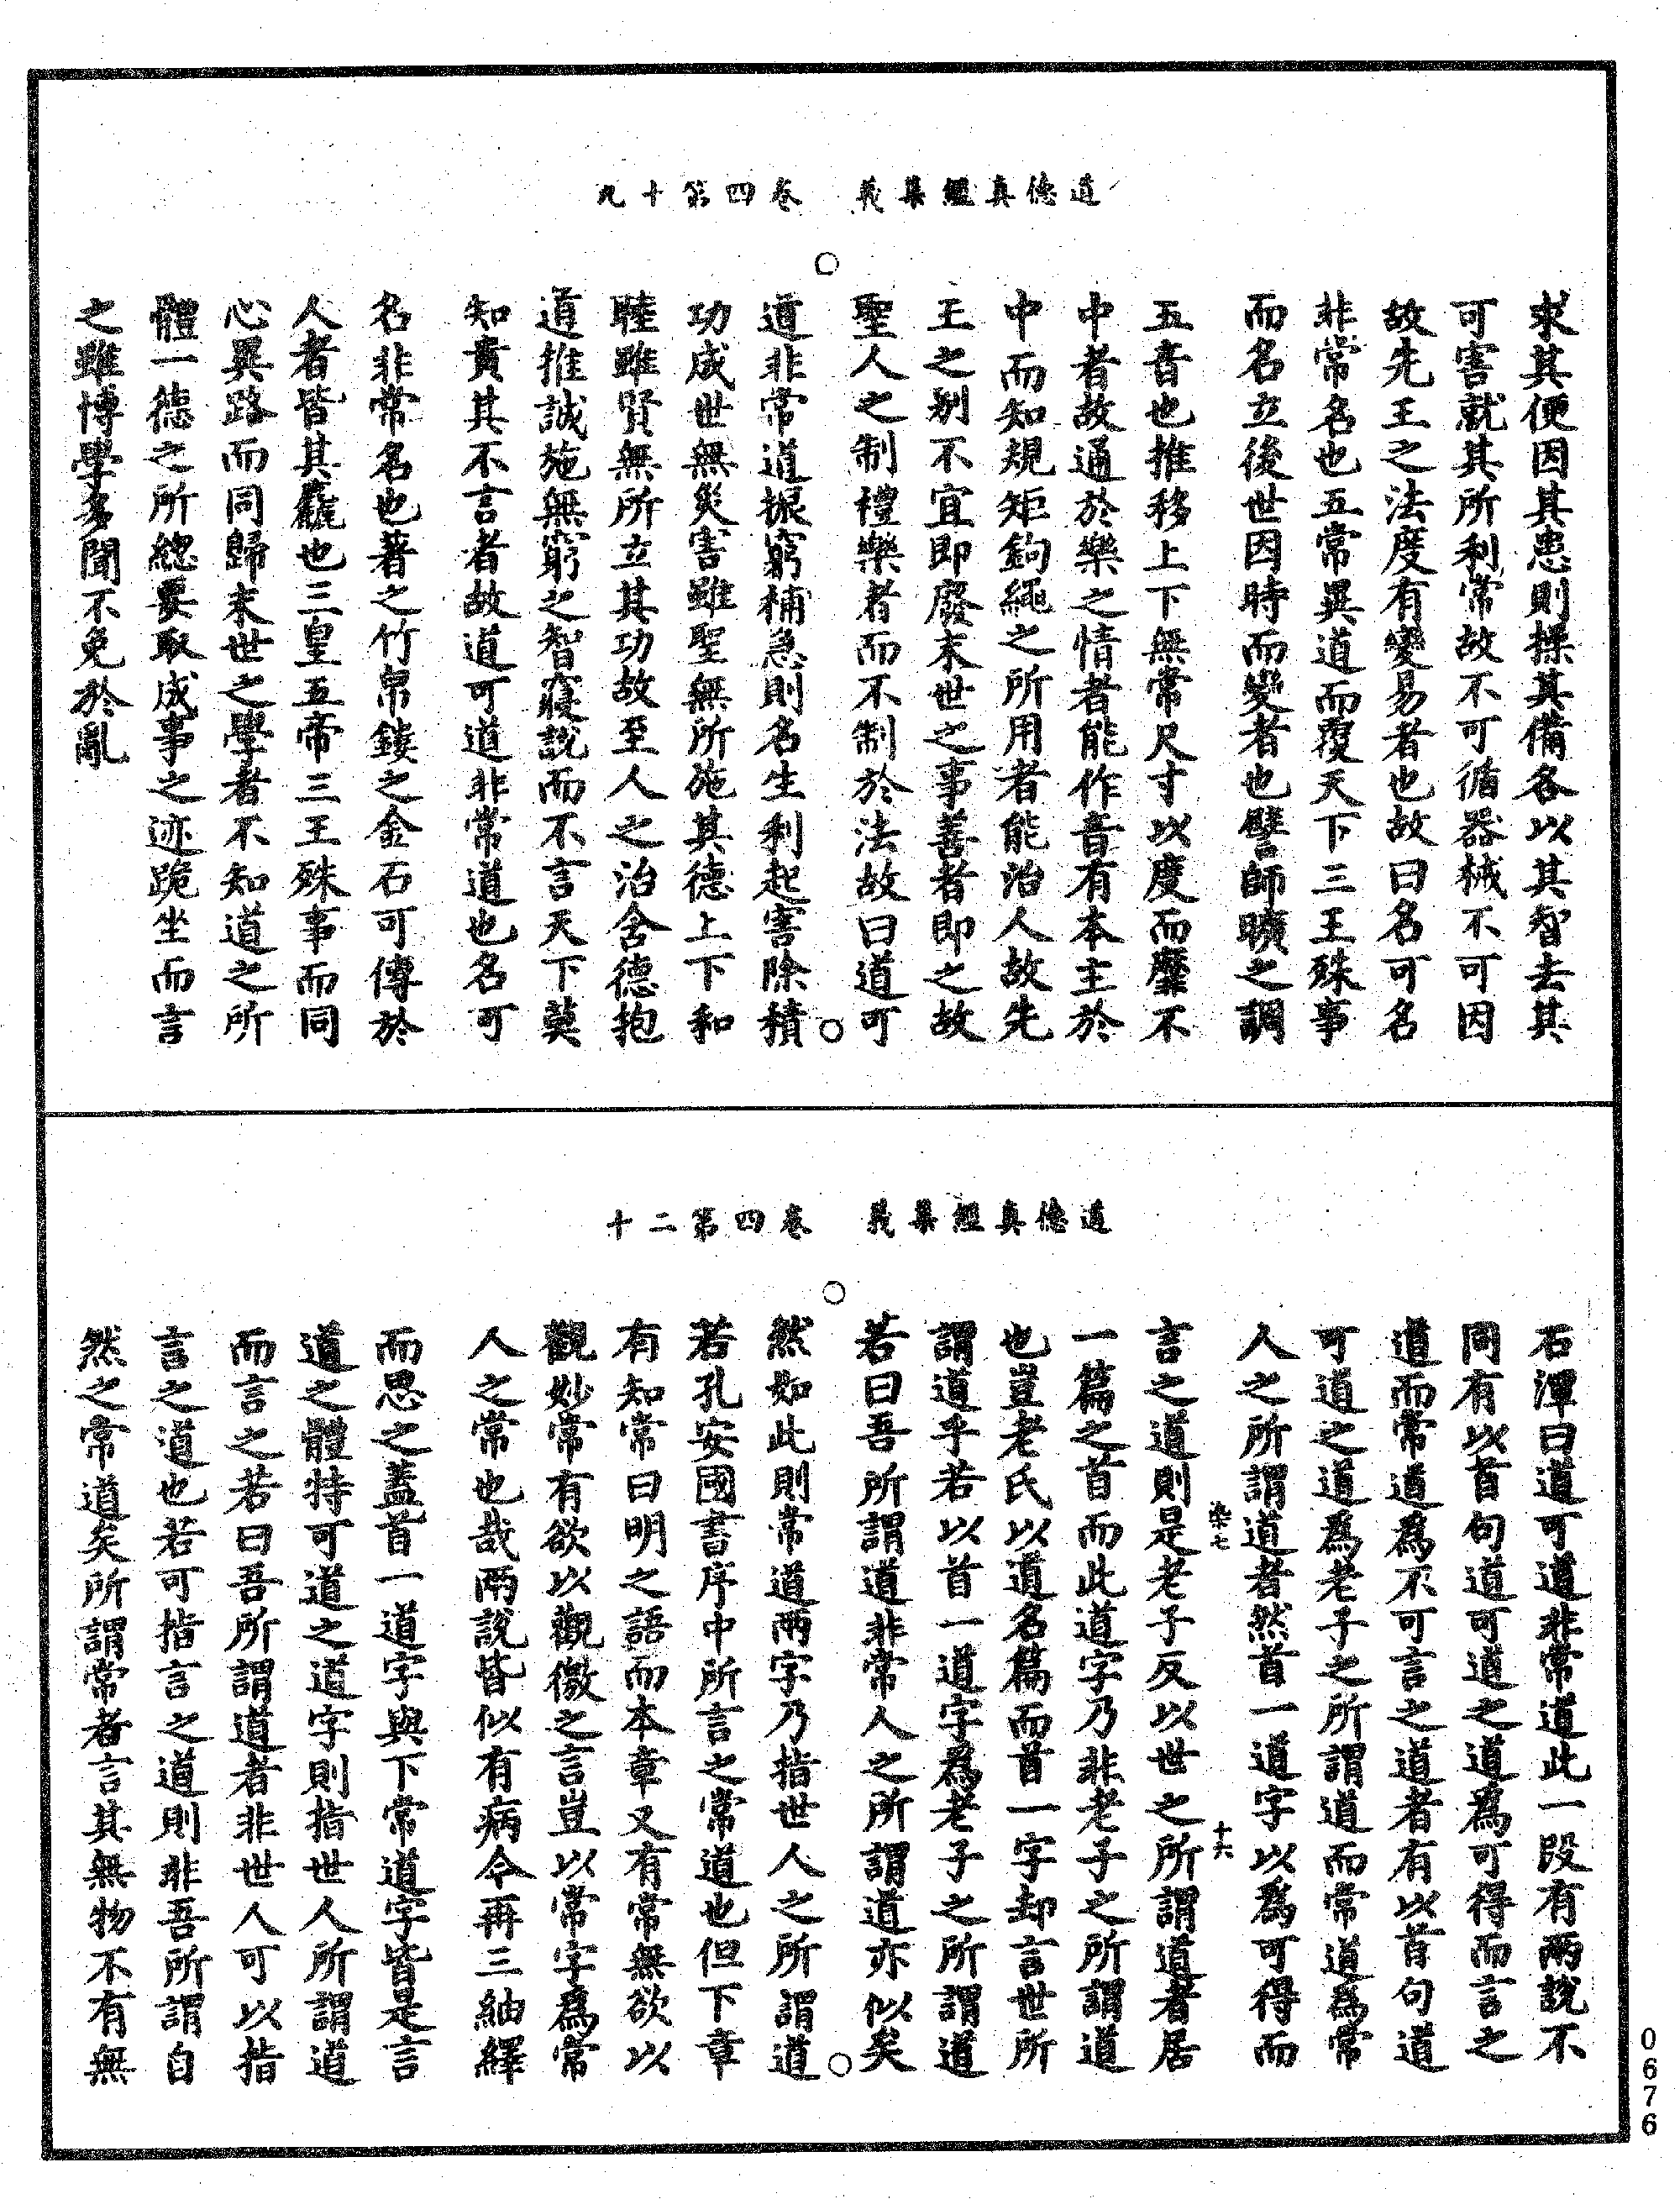 道德真經集義　卷四第十九
求其便因其患則操其備各以其智去其
可害就其所利常故不可循器械不可因
故先王之法度有變易者也故曰名可名
非常名也五常異道而覆天下三王殊事
而名立後世因時而變者也譬師曠之調
五音也推移上下無常尺寸以度而靡不
中者故通於樂之情者能作音有本主於
中而知規矩鉤繩之所用者能治人故先
王之剏不宜即廢末世之事善者即之故
聖人之制禮樂者而不制於法故曰道可
道非常道振窮補急則名生利起害除積
功成世無災害雖聖無所施其德上下和
睦雖賢無所立其功故至人之治含德抱
道推誠施無窮之智寢說而不言天下莫
知貴其不言者故道可道非常道也名可
名非常名也著之竹帛鏤之金石可傳於
人者皆其麤也三皇五帝三王殊事而同
心異路而同歸末世之學者不知道之所
體一德之所總要取成事之迹跪坐而言
之雖博學多聞不免於亂
道德真經集義　卷四第二十
石潭曰道可道非常道此一段有兩說不
同有以首句道可道之道為可得而言之
道而常道為不可言之道者有以首句道
可道之道為老子之所謂道而常道為常
人之所謂道者然首一道字以為可得而
染七　十六
言之道則是老子反以世之所謂道者居
一篇之首而此道字乃非老子之所謂道
也豈老氏以道名篇而首一字却言世所
謂道乎若以首一道字為老子之所謂道
若曰吾所謂道非常人之所謂道亦似矣
然如此則常道兩字乃指世人之所謂道
若孔安國書序中所言之常道也但下章
有知常曰明之語而本章又有常無欲以
觀妙常有欲以觀徼之言豈以常字為常
人之常也哉兩說皆似有病今再三紬繹
而思之蓋首一道字與下常道字皆是言
道之體特可道之道字則指世人所謂道
而言之若曰吾所謂道者非世人可以指
言之道也若可指言之道則非吾所謂自
然之常道矣所謂常者言其無物不有無
0676